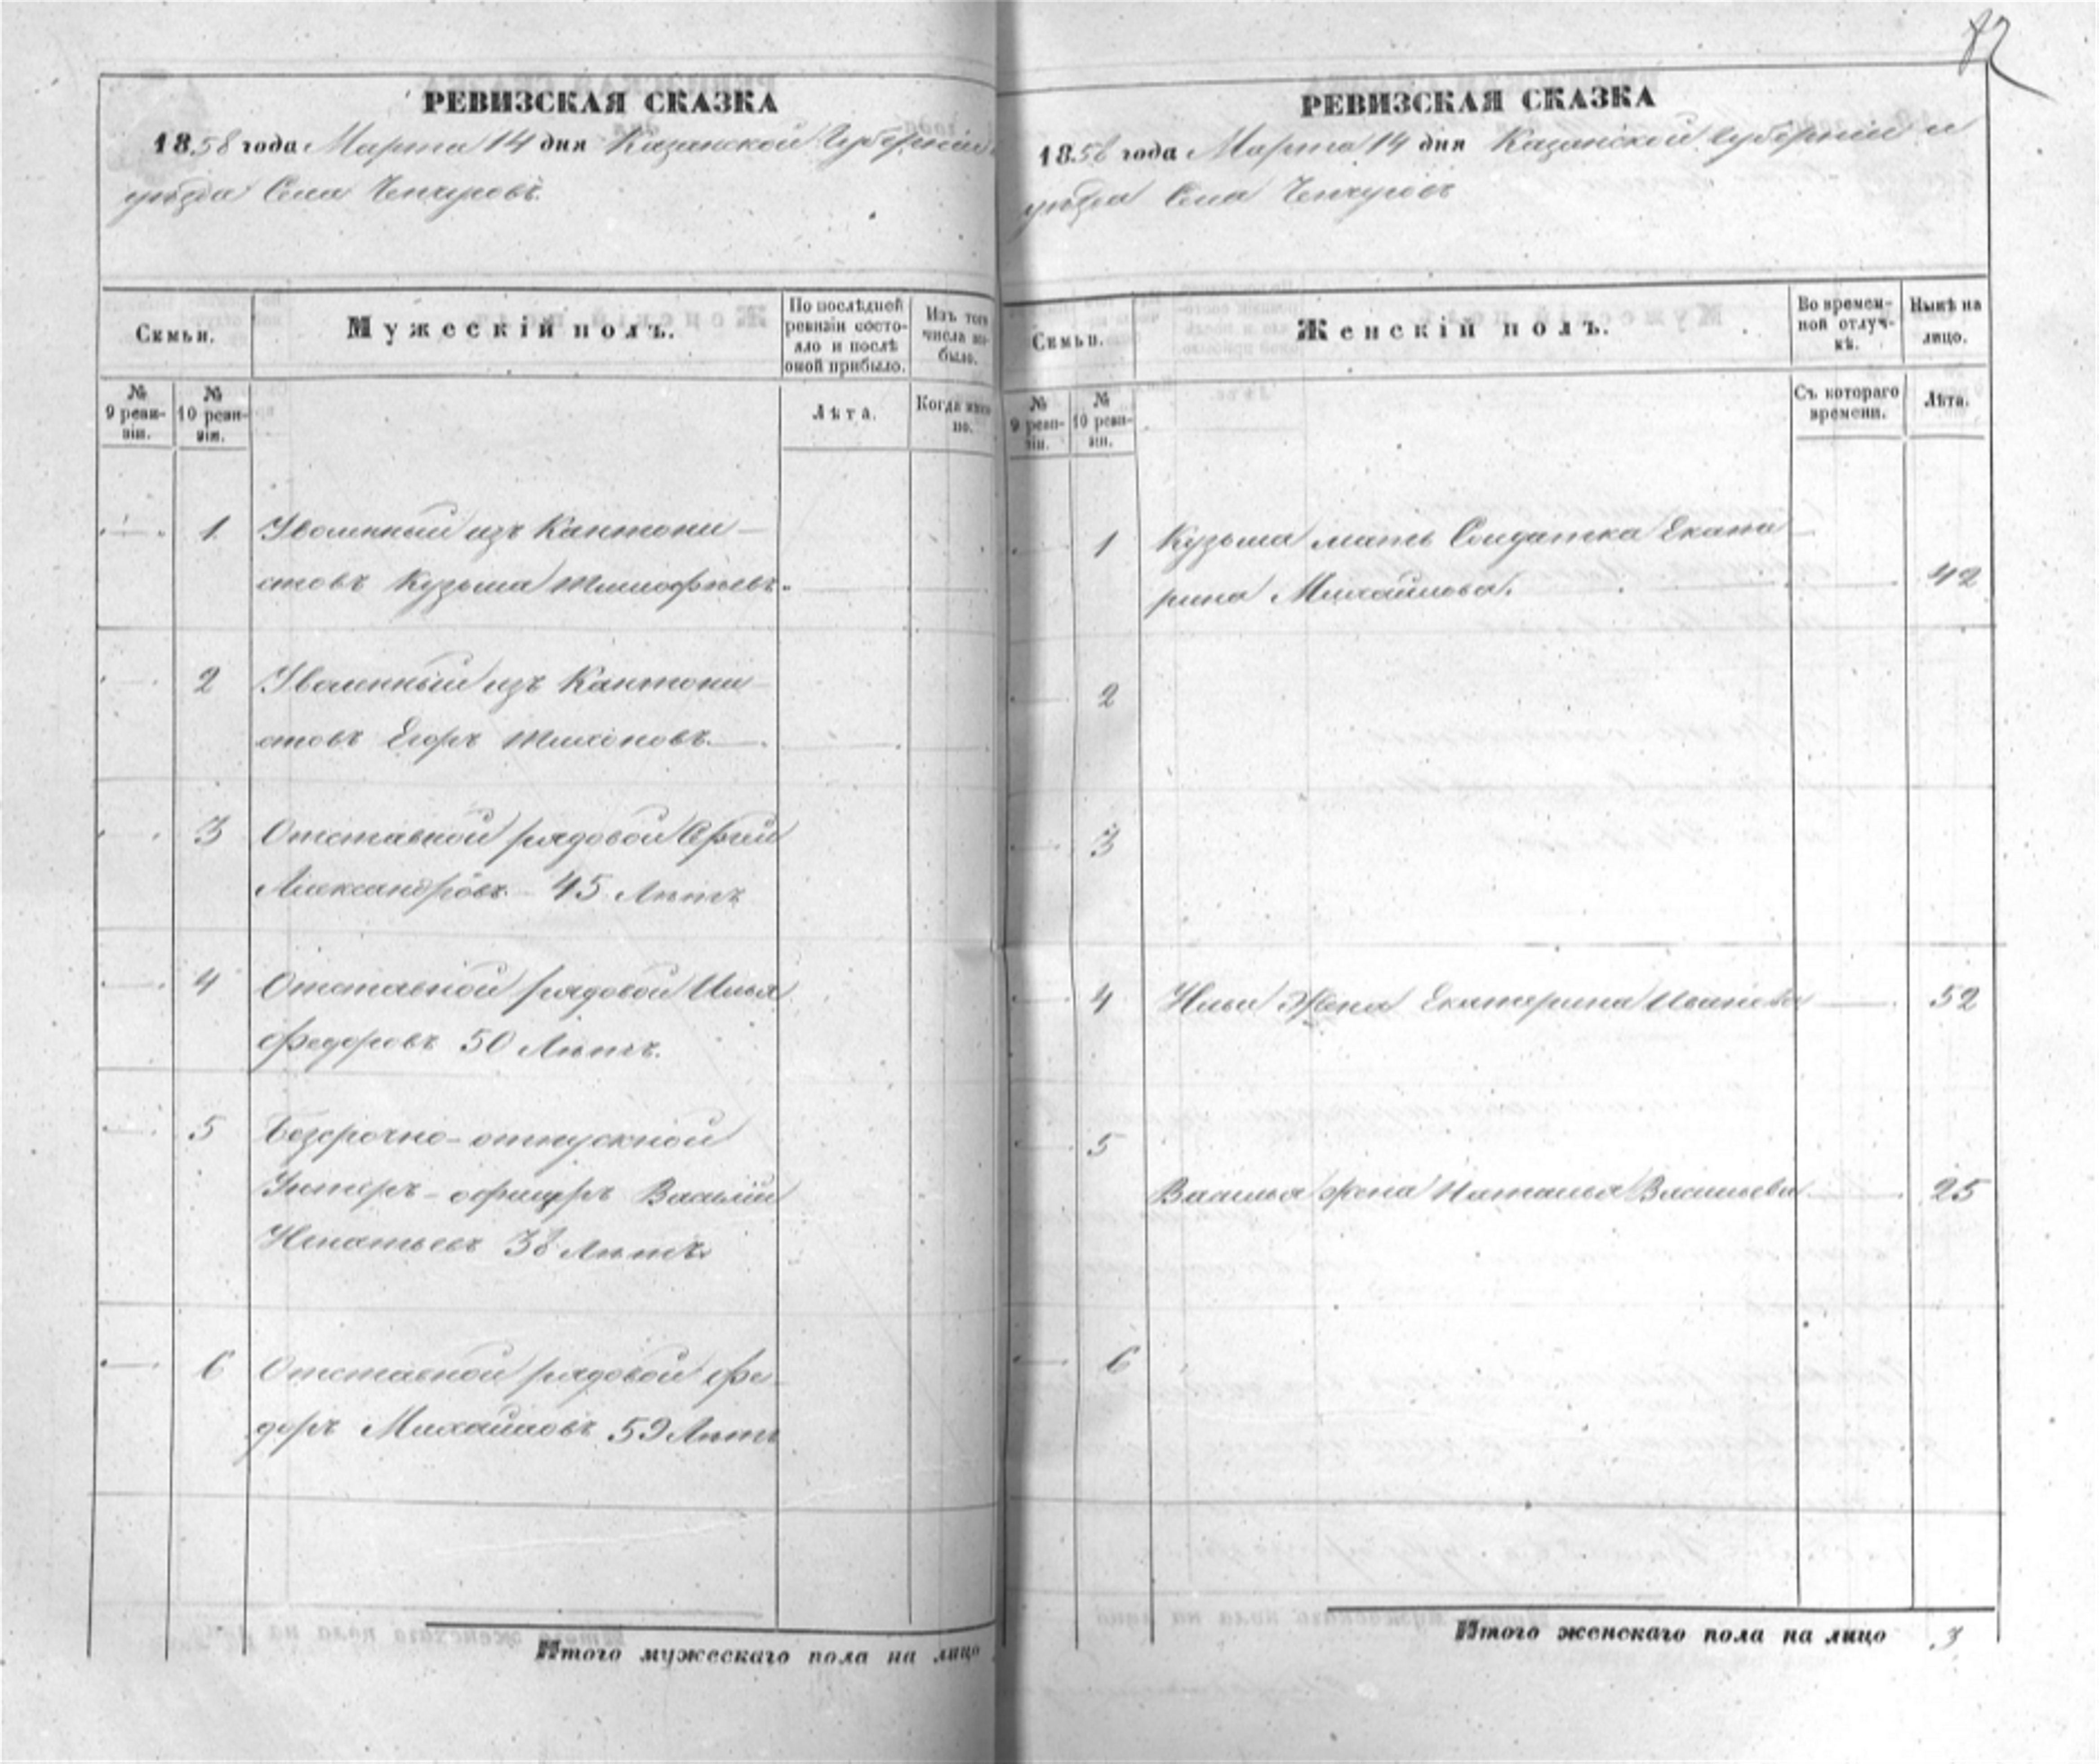 82
РЕВИЗСКАЯ СКАЗКА
1858 года Марта 14 дня Казанской Губерніи
уѣзда Села Чепчуговъ.
Семьи.
Мужескій полъ.
По послѣдней ревизіи состояло и послѣ оной прибыло.
Изъ того числа выбыло.
№ 9 ревизіи.
№ 10 ревизіи.
Лѣта.
Когда именно.
1 Уволенный изъ Кантони-
стовъ Кузьма Тимофѣевъ.
2 Уволенный изъ Кантони-
стовъ Егоръ Тихоновъ.
3 Отставной рядовой
Александровъ 45 Лѣтъ
4 Отставной рядовой Илья
Федоровъ 50 Лѣтъ.
5 Безсрочно-отпускной
Унтеръ-офицеръ Василій
Игнатьевъ 38 Лѣтъ.
6 Отставной рядовой Фе-
доръ Михайловъ 59 Лѣтъ
Итого мужескаго пола на лицо
РЕВИЗСКАЯ СКАЗКА
1858 года Марта 14 дня Казанской Губерніи и
уѣзда Села Чепчуговъ
Семьи.
Женскій полъ.
Во временной отлучкѣ.
Нынѣ на лицо.
№ 9 ревизіи.
№ 10 ревизіи.
Съ котораго времени.
Лѣта.
1 Кузьма мать Солдатка Екате
рина Михайлова. 42
2
3
4 Ильи Жена Екатерина Иванова 52
5
Василья жена Наталья Васильева 25
6
Итого женскаго пола на лицо 3